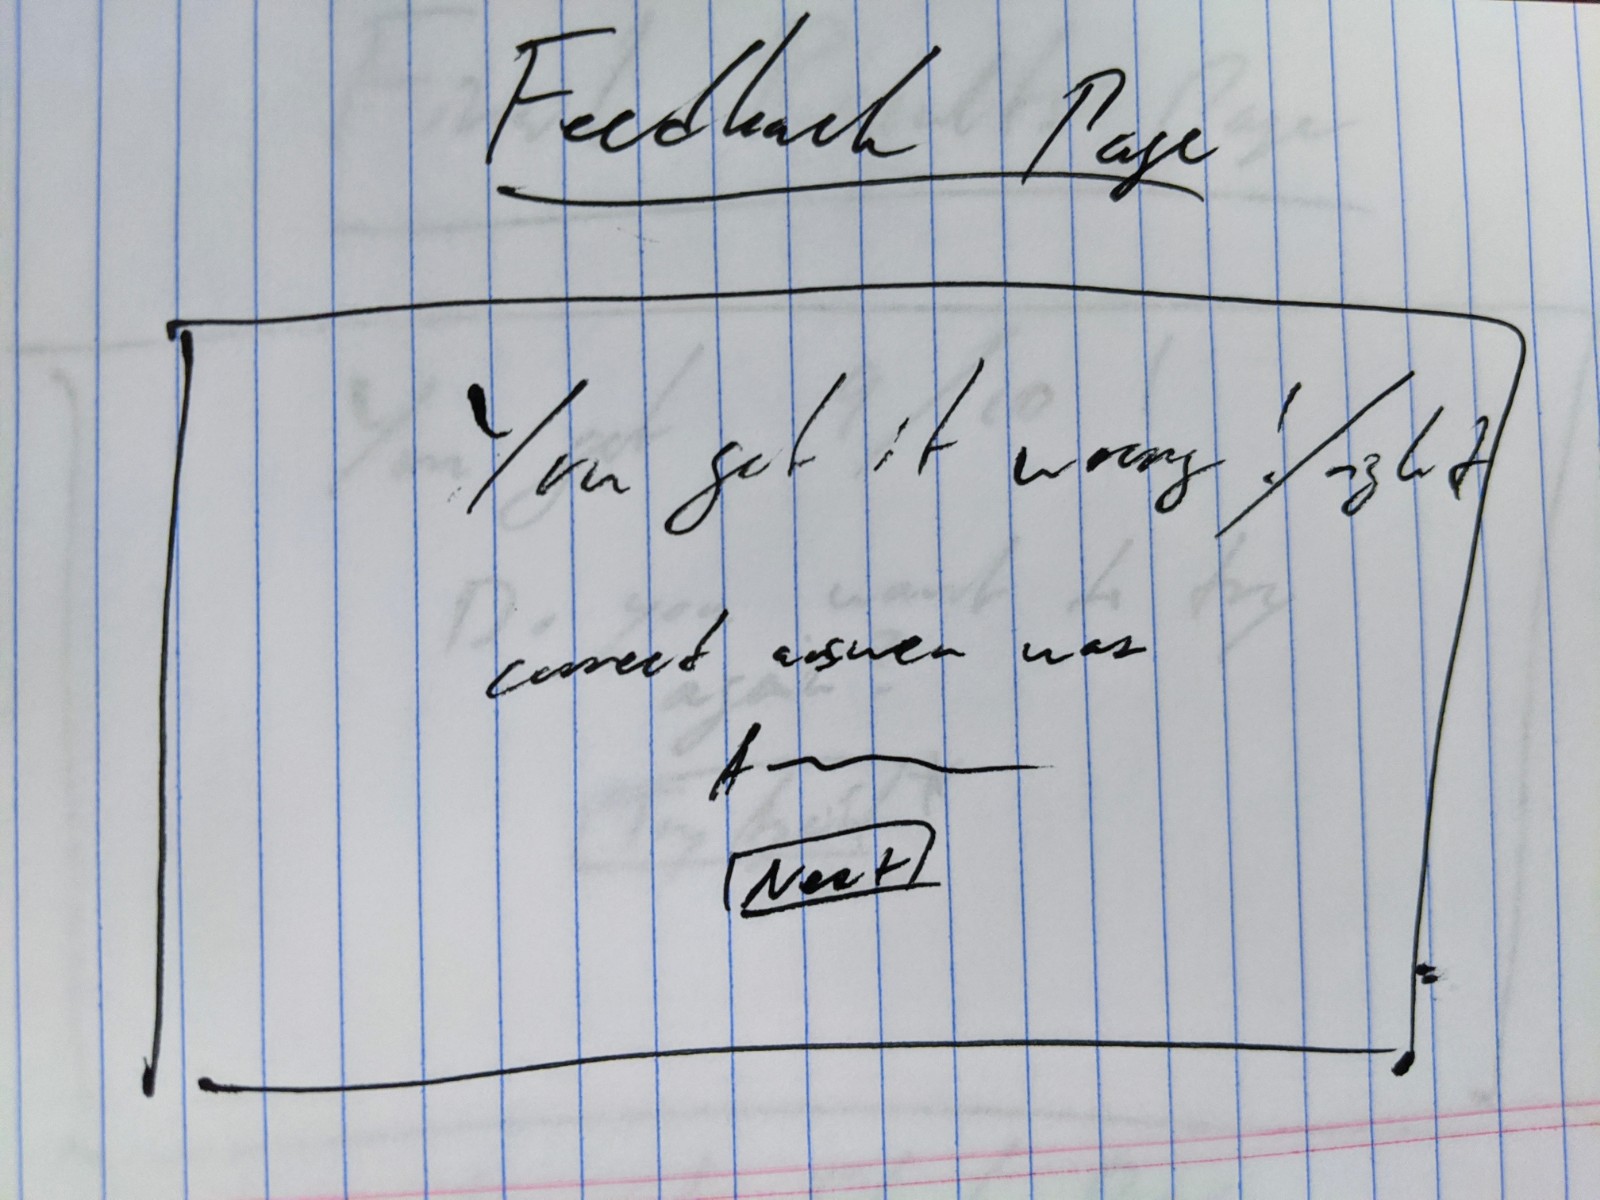 Feedback Page
You got it wrong!/right
correct answer was
A
Next